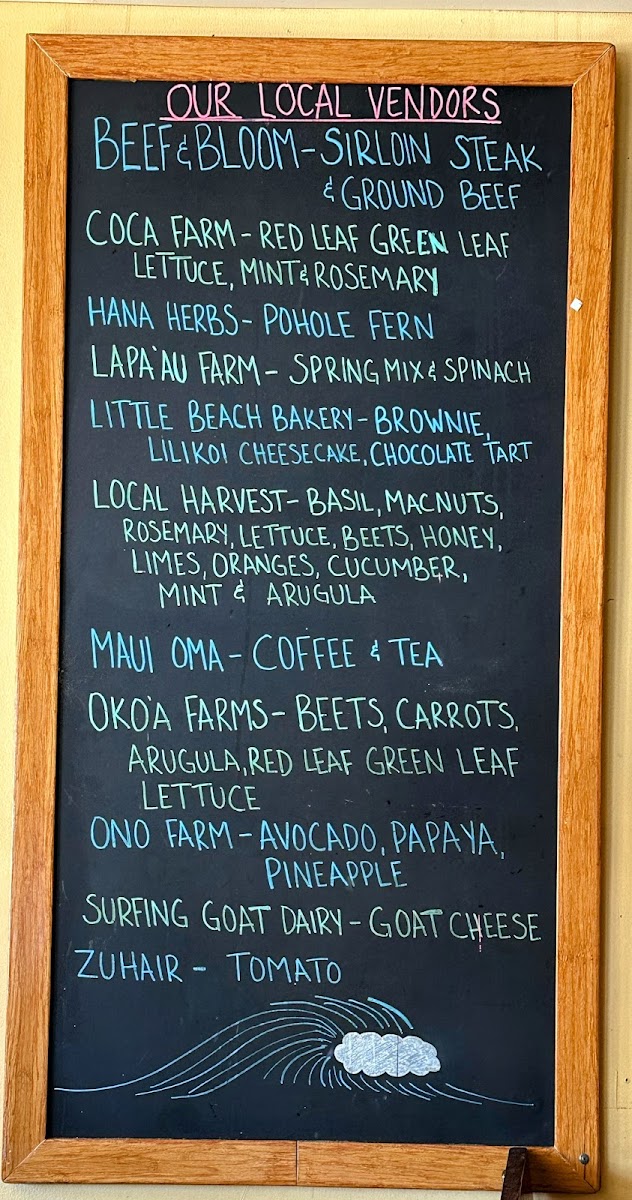 OUR LOCAL VENDORS
BEEF & BLOOM - SIRLOIN STEAK
& GROUND BEEF
COCA FARM - RED LEAF GREEN LEAF
LETTUCE, MINT & ROSEMARY
HANA HERBS - POHOLE FERN
LAPA'AU FARM - SPRING MIX & SPINACH
LITTLE BEACH BAKERY - BROWNIE,
LILIKOI CHEESECAKE, CHOCOLATE TART
LOCAL HARVEST - BASIL, MACNUTS,
ROSEMARY, LETTUCE, BEETS, HONEY,
LIMES, ORANGES, CUCUMBER,
MINT & ARUGULA
MAUI OMA - COFFEE & TEA
OKO'A FARMS - BEETS, CARROTS,
ARUGULA, RED LEAF GREEN LEAF
LETTUCE
ONO FARM - AVOCADO, PAPAYA,
PINEAPPLE
SURFING GOAT DAIRY - GOAT CHEESE
ZUHAIR - TOMATO